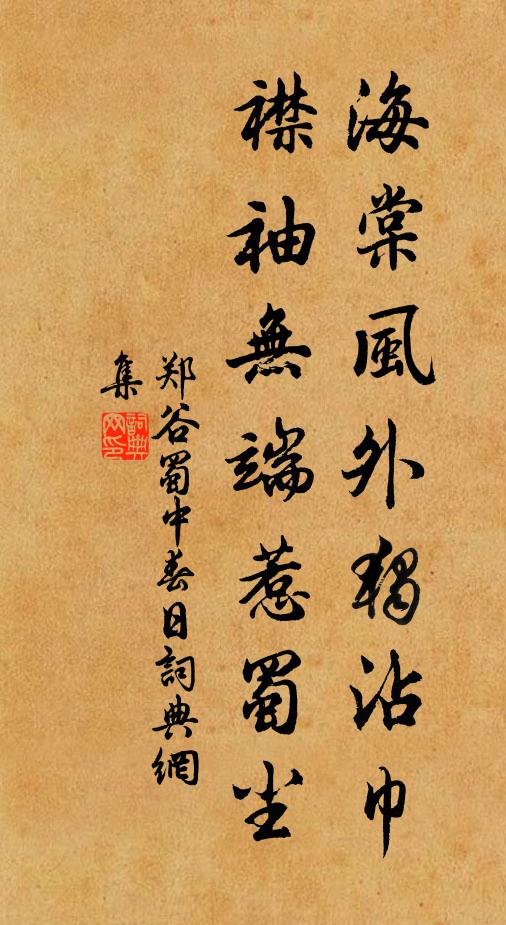 海棠風外獨沾巾
襟袖無端惹蜀尘
郑谷蜀中春日詞典網
集
詞典网印